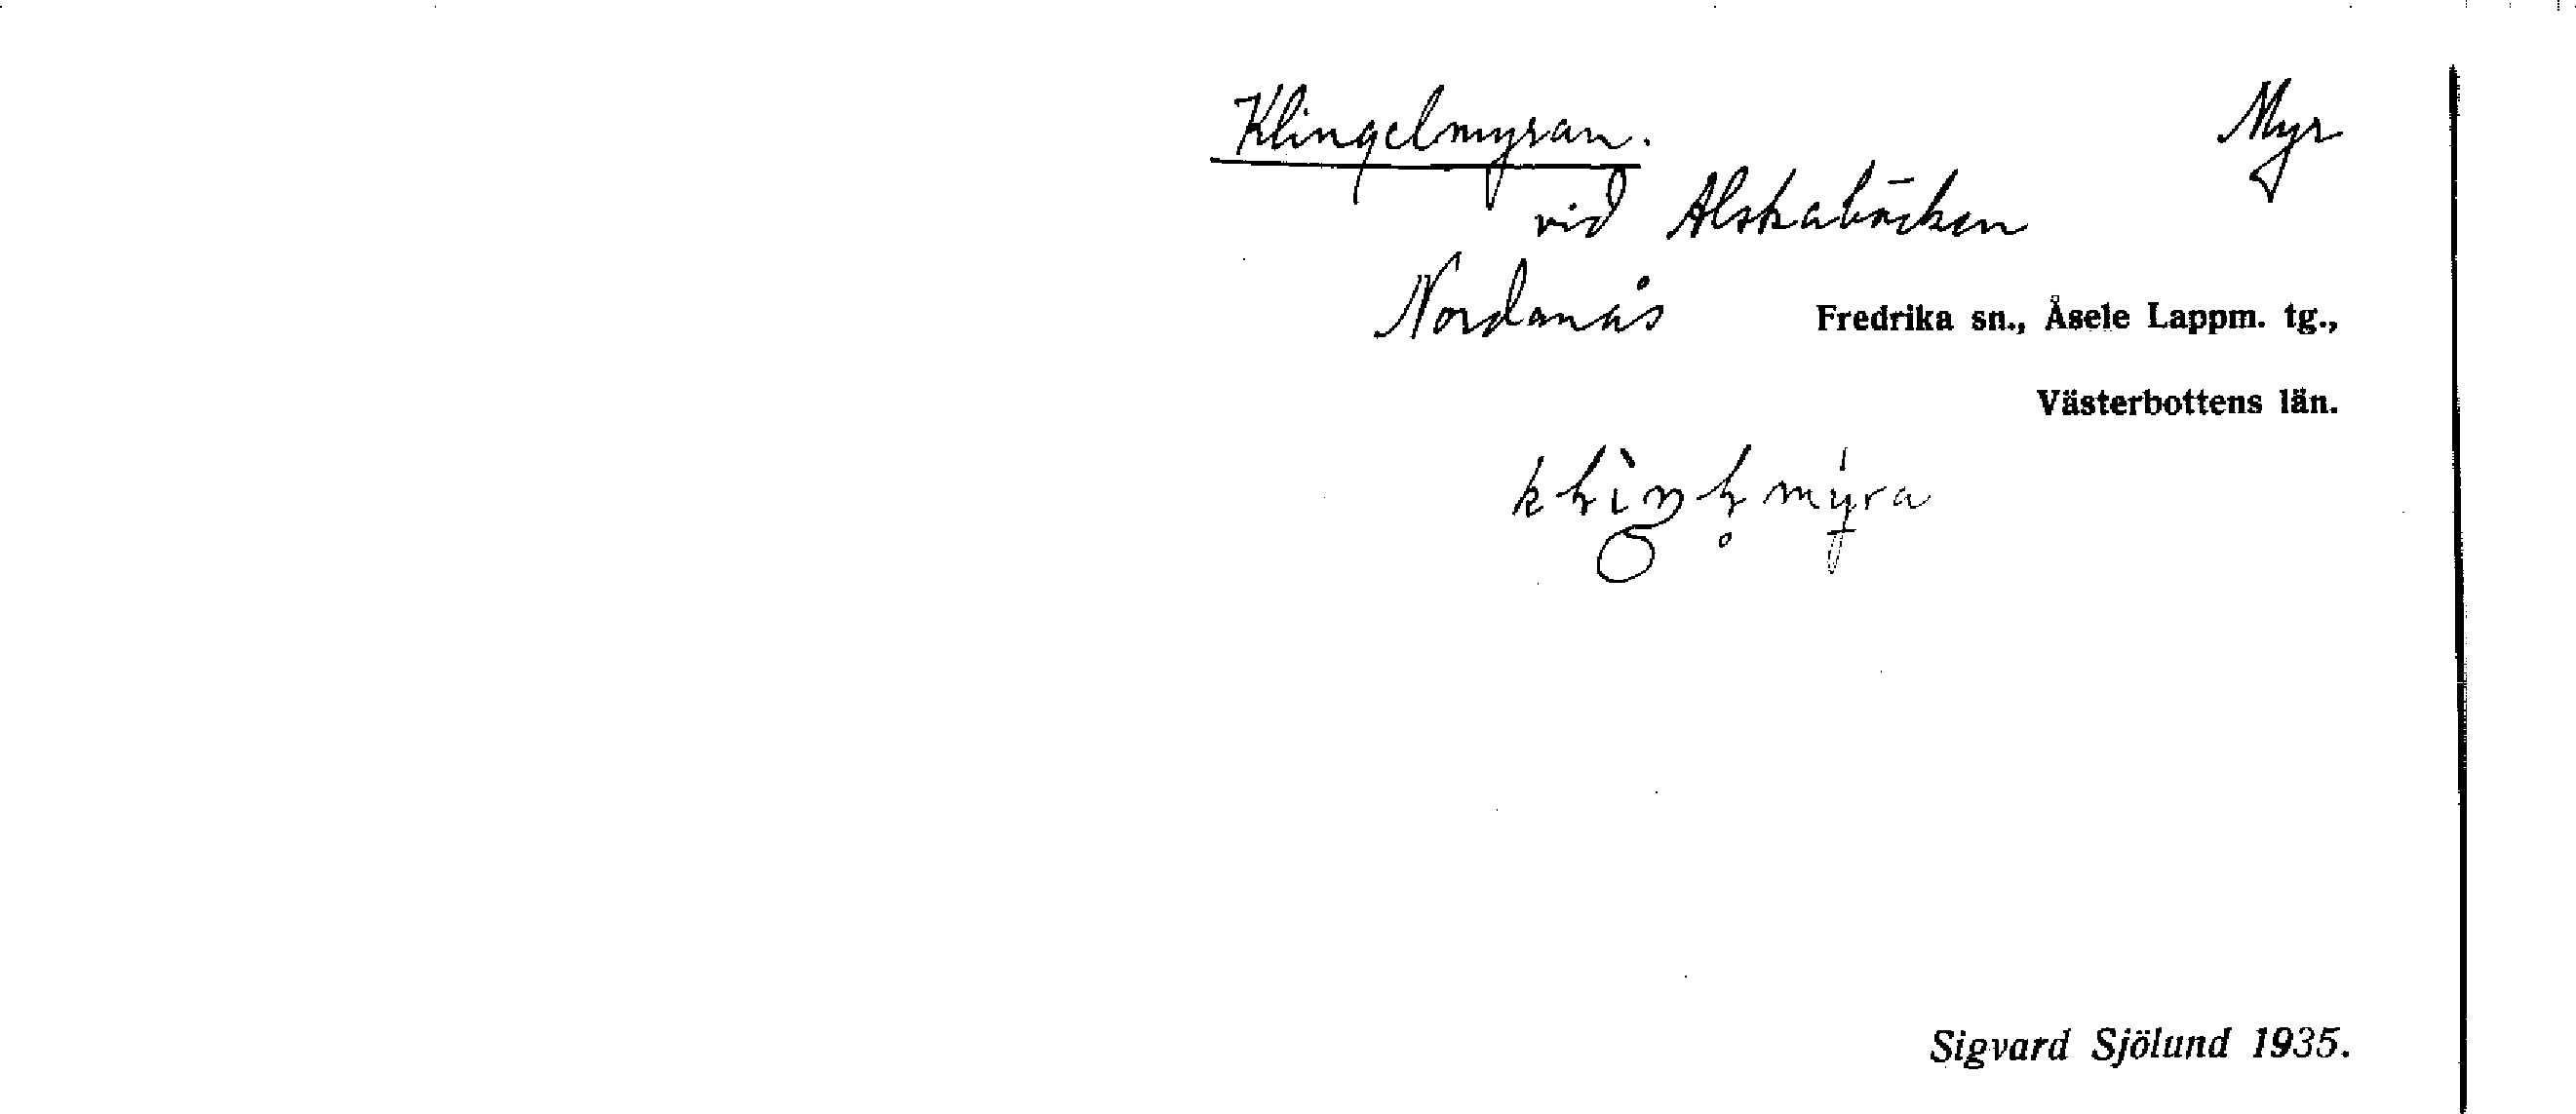 Klingelmyran. Myr
vid Alskabäcken
Nordanås Fredrika sn., Åsele Lappm. tg.,
Västerbottens län.
Sigvard Sjölund 1935.